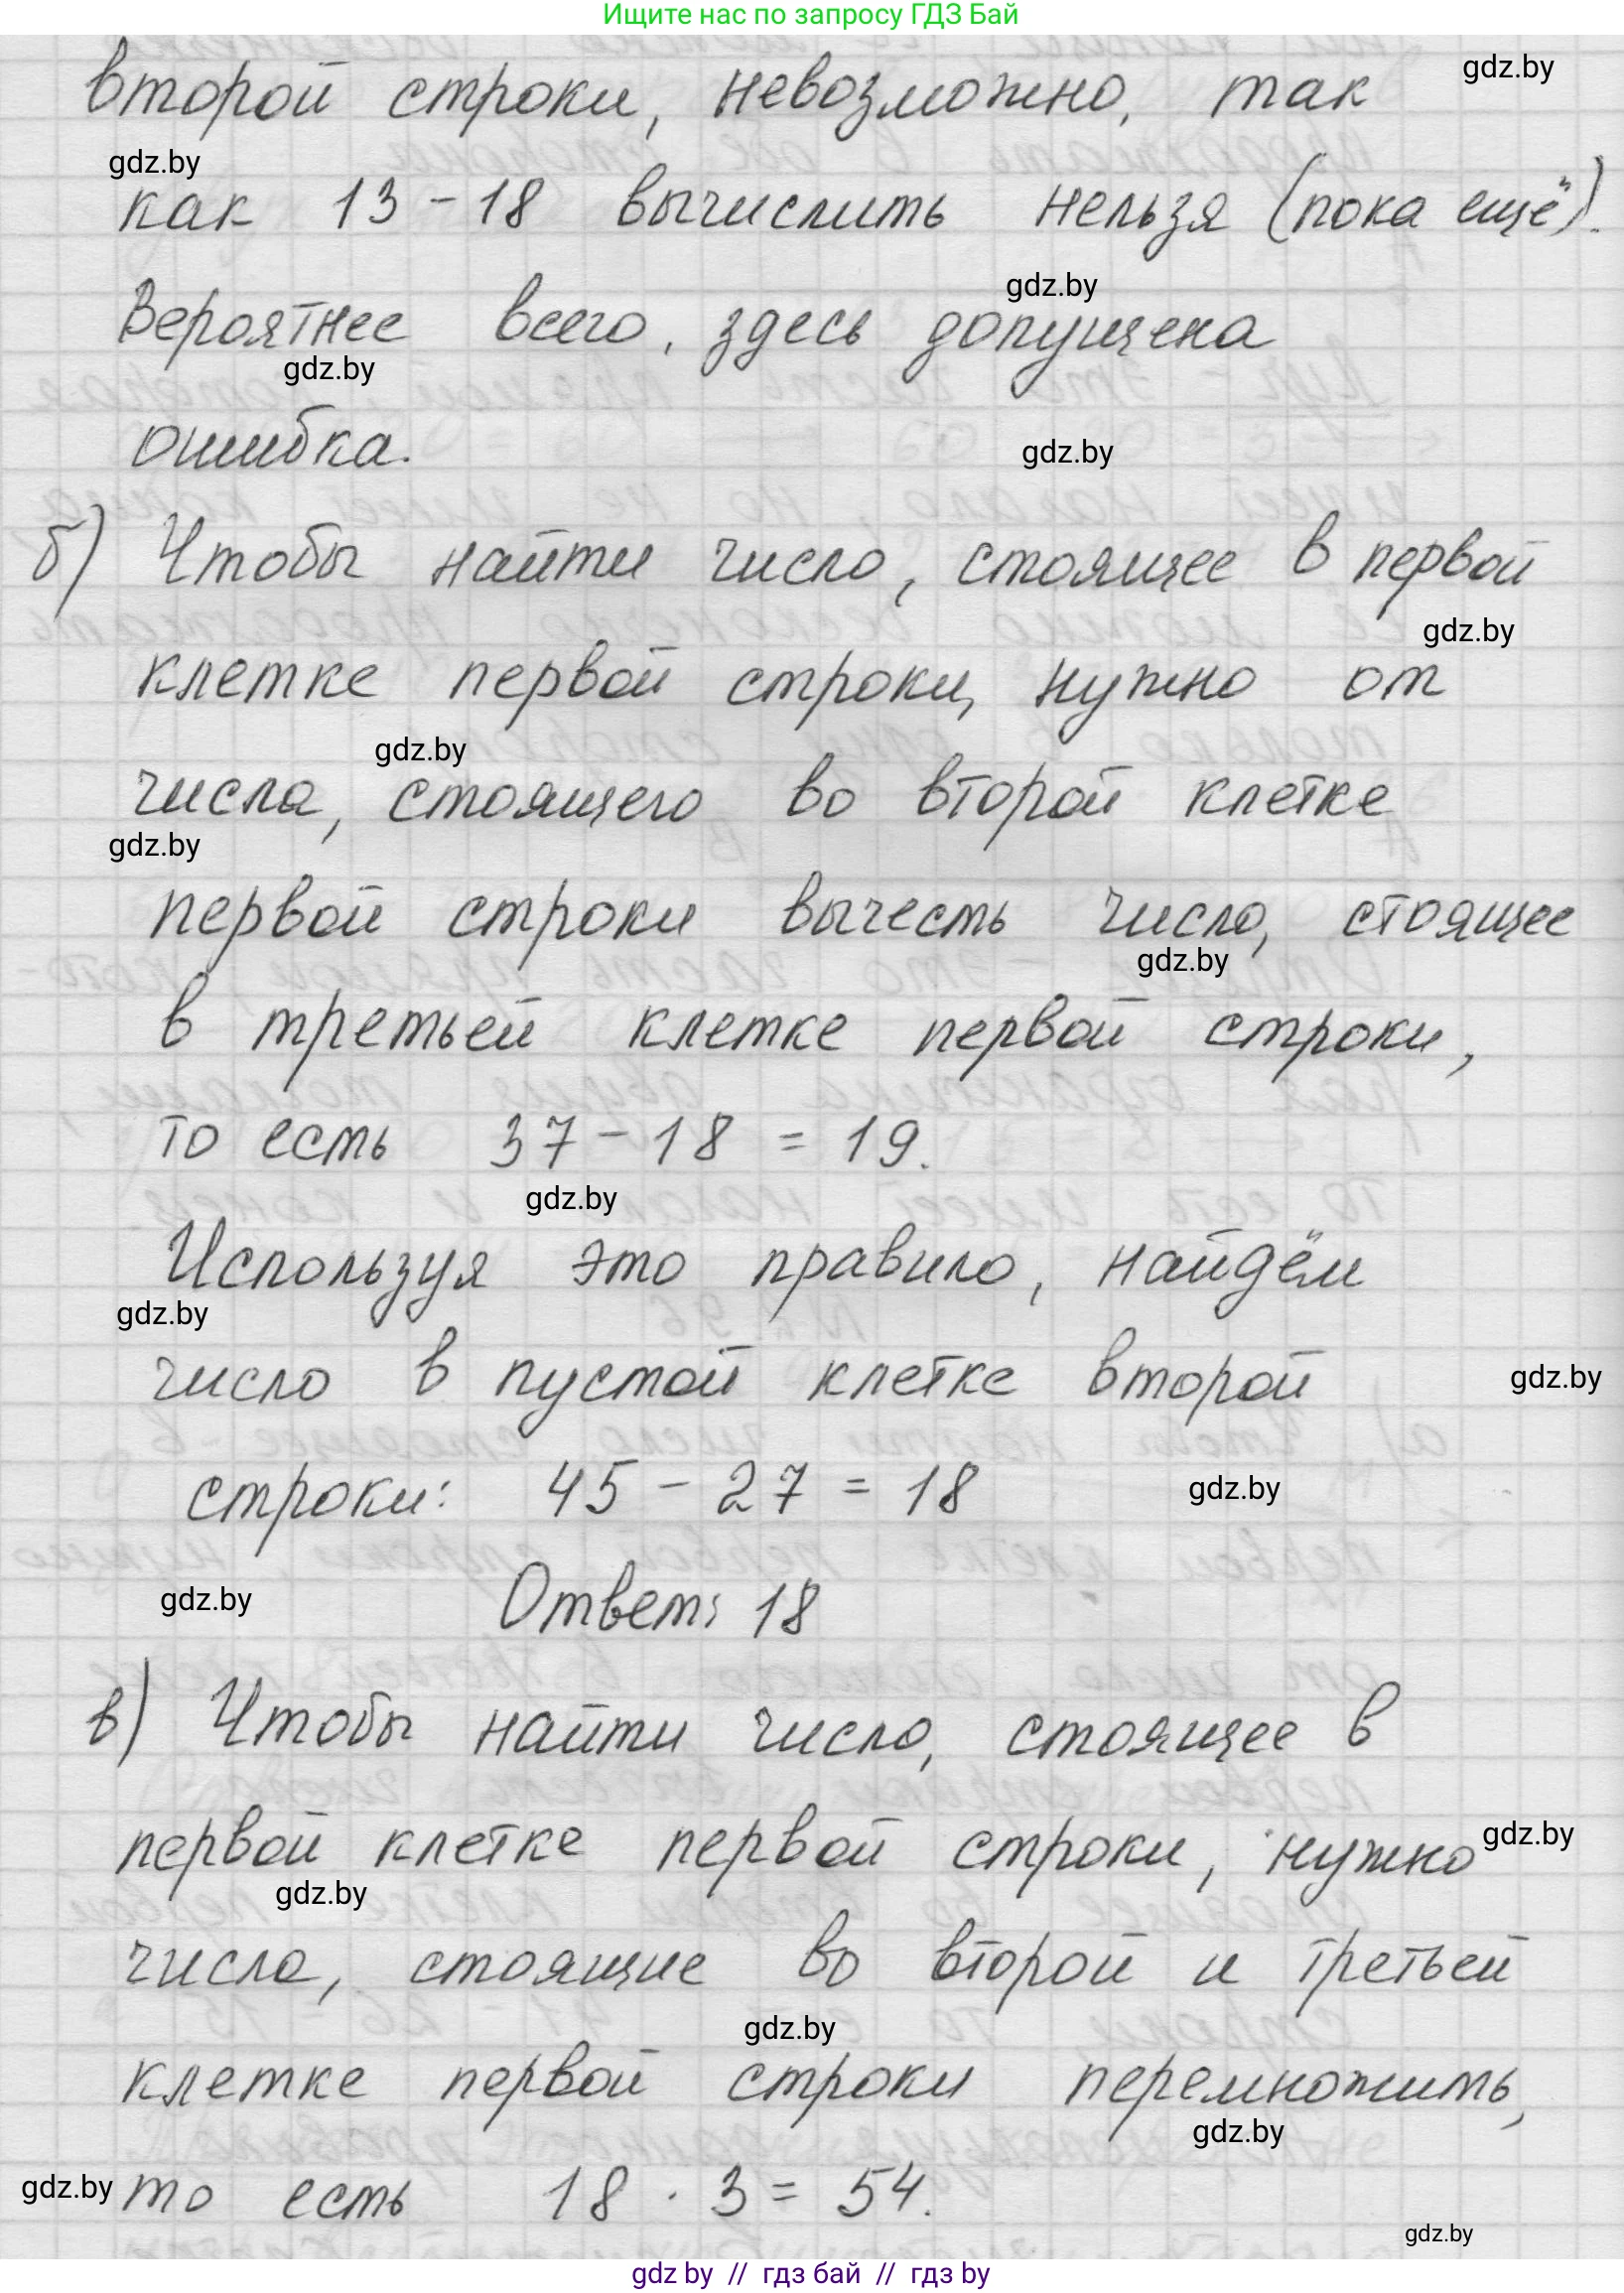 Ищите нас по запросу ГДЗ Бай
второй строки, невозможно, так
gdz.by
gdz.by
как 13 - 18 вычислить нельзя (пока ещё).
gdz.by
Вероятнее всего, здесь допущена
gdz.by
ошибка.
gdz.by
б) Чтобы найти число, стоящее в первой
gdz.by
клетке первой строки, нужно от
gdz.by
числа, стоящего во второй клетке
gdz.by
первой строки вычесть число, стоящее
gdz.by
в третьей клетке первой строки,
то есть 37 - 18 = 19.
gdz.by
Используя это правило, найдём
gdz.by
число в пустой клетке второй
gdz.by
строки: 45 - 27 = 18
gdz.by
gdz.by
Ответ: 18
в) Чтобы найти число, стоящее в
первой клетке первой строки, нужно
gdz.by
gdz.by
числа, стоящие во второй и третьей
gdz.by
клетке первой строки перемножить,
gdz.by
gdz.by
то есть 18 · 3 = 54.
gdz.by
gdz by // гдз бай // гдз by